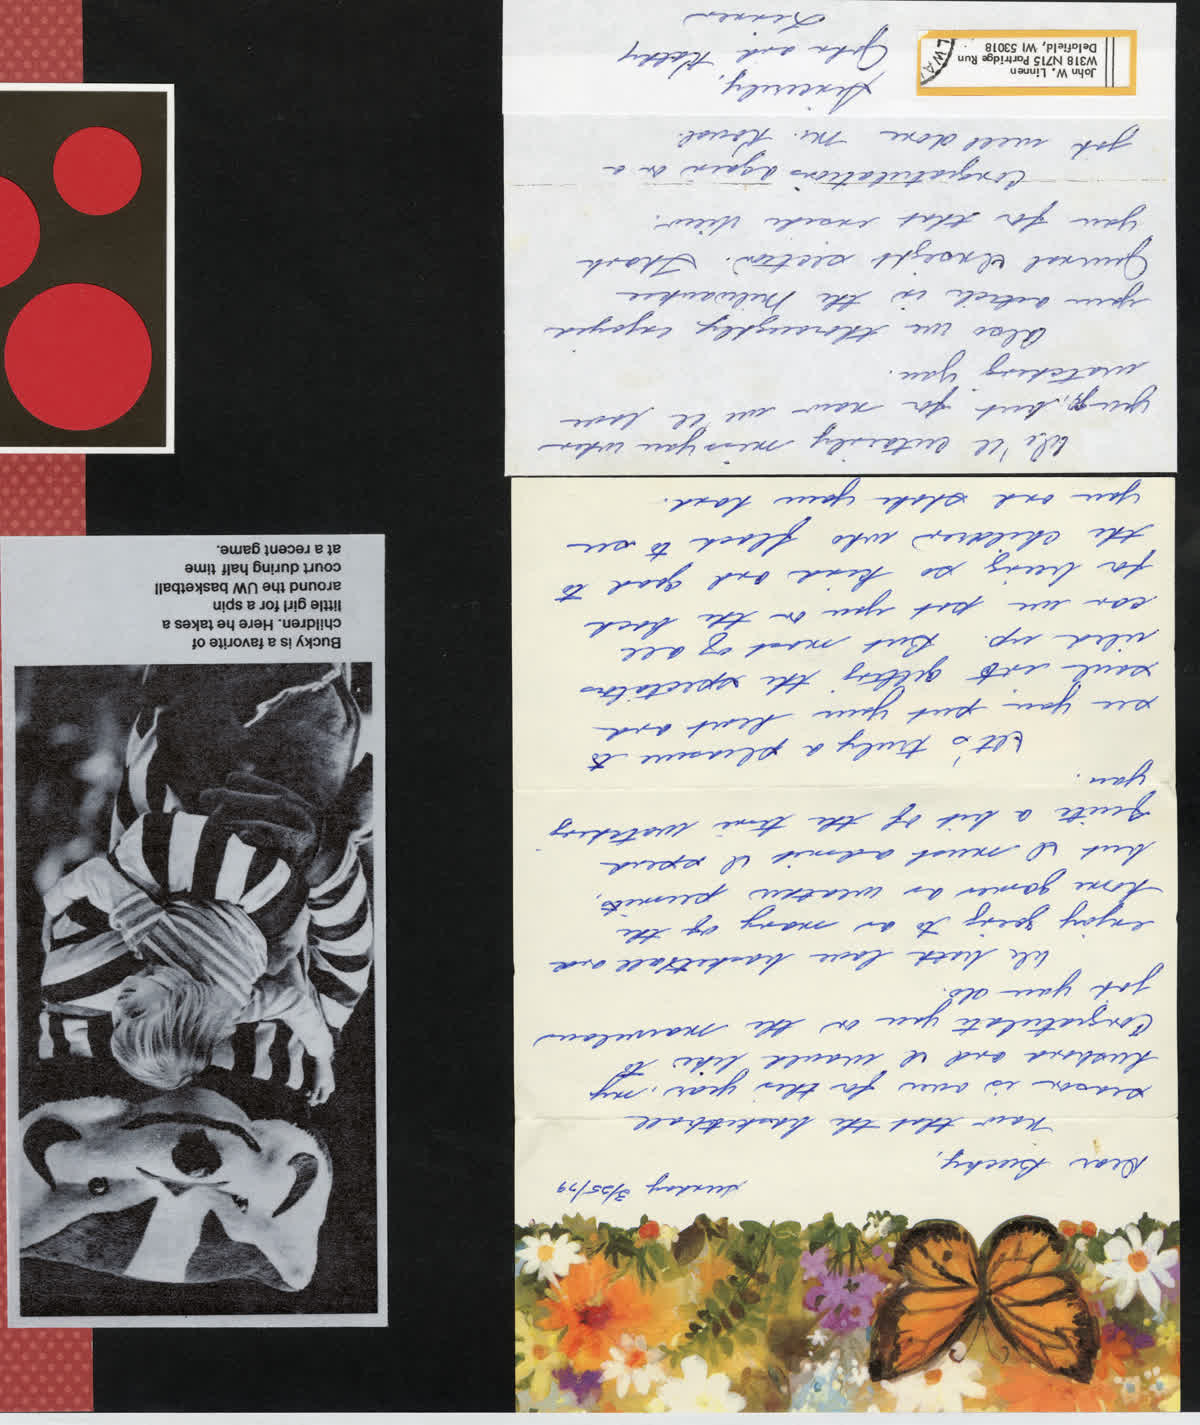 Sunday 3/25/79
Dear Bucky,
Now that the basketball
season is over for this year, my
husband and I would like to
Congratulate you on the marvelous
job you do.
We both love basketball and
enjoy going to as many of the
home games as weather permits,
but I must admit I spend
quite a bit of the time watching
you.
It's truly a pleasure to
see you put your heart and
soul into getting the spectators
riled up. But most of all
can we pat you on the back
for being so kind and good to
the children who flock to see
you and shake your hand.
We'll certainly miss you when
going, but for now we'll love
watching you.
Also we thoroughly enjoyed
your article in the Milwaukee
Journal Insight section. Thank
you for that inside view.
Congratulations again on a
job well done Mr.
Sincerely,
John and Kathy
Linnen
John W. Linnen
W318 N715 Partridge Run
Delafield, WI 53018
LWA
Bucky is a favorite of
children. Here he takes a
little girl for a spin
around the UW basketball
court during half time
at a recent game.